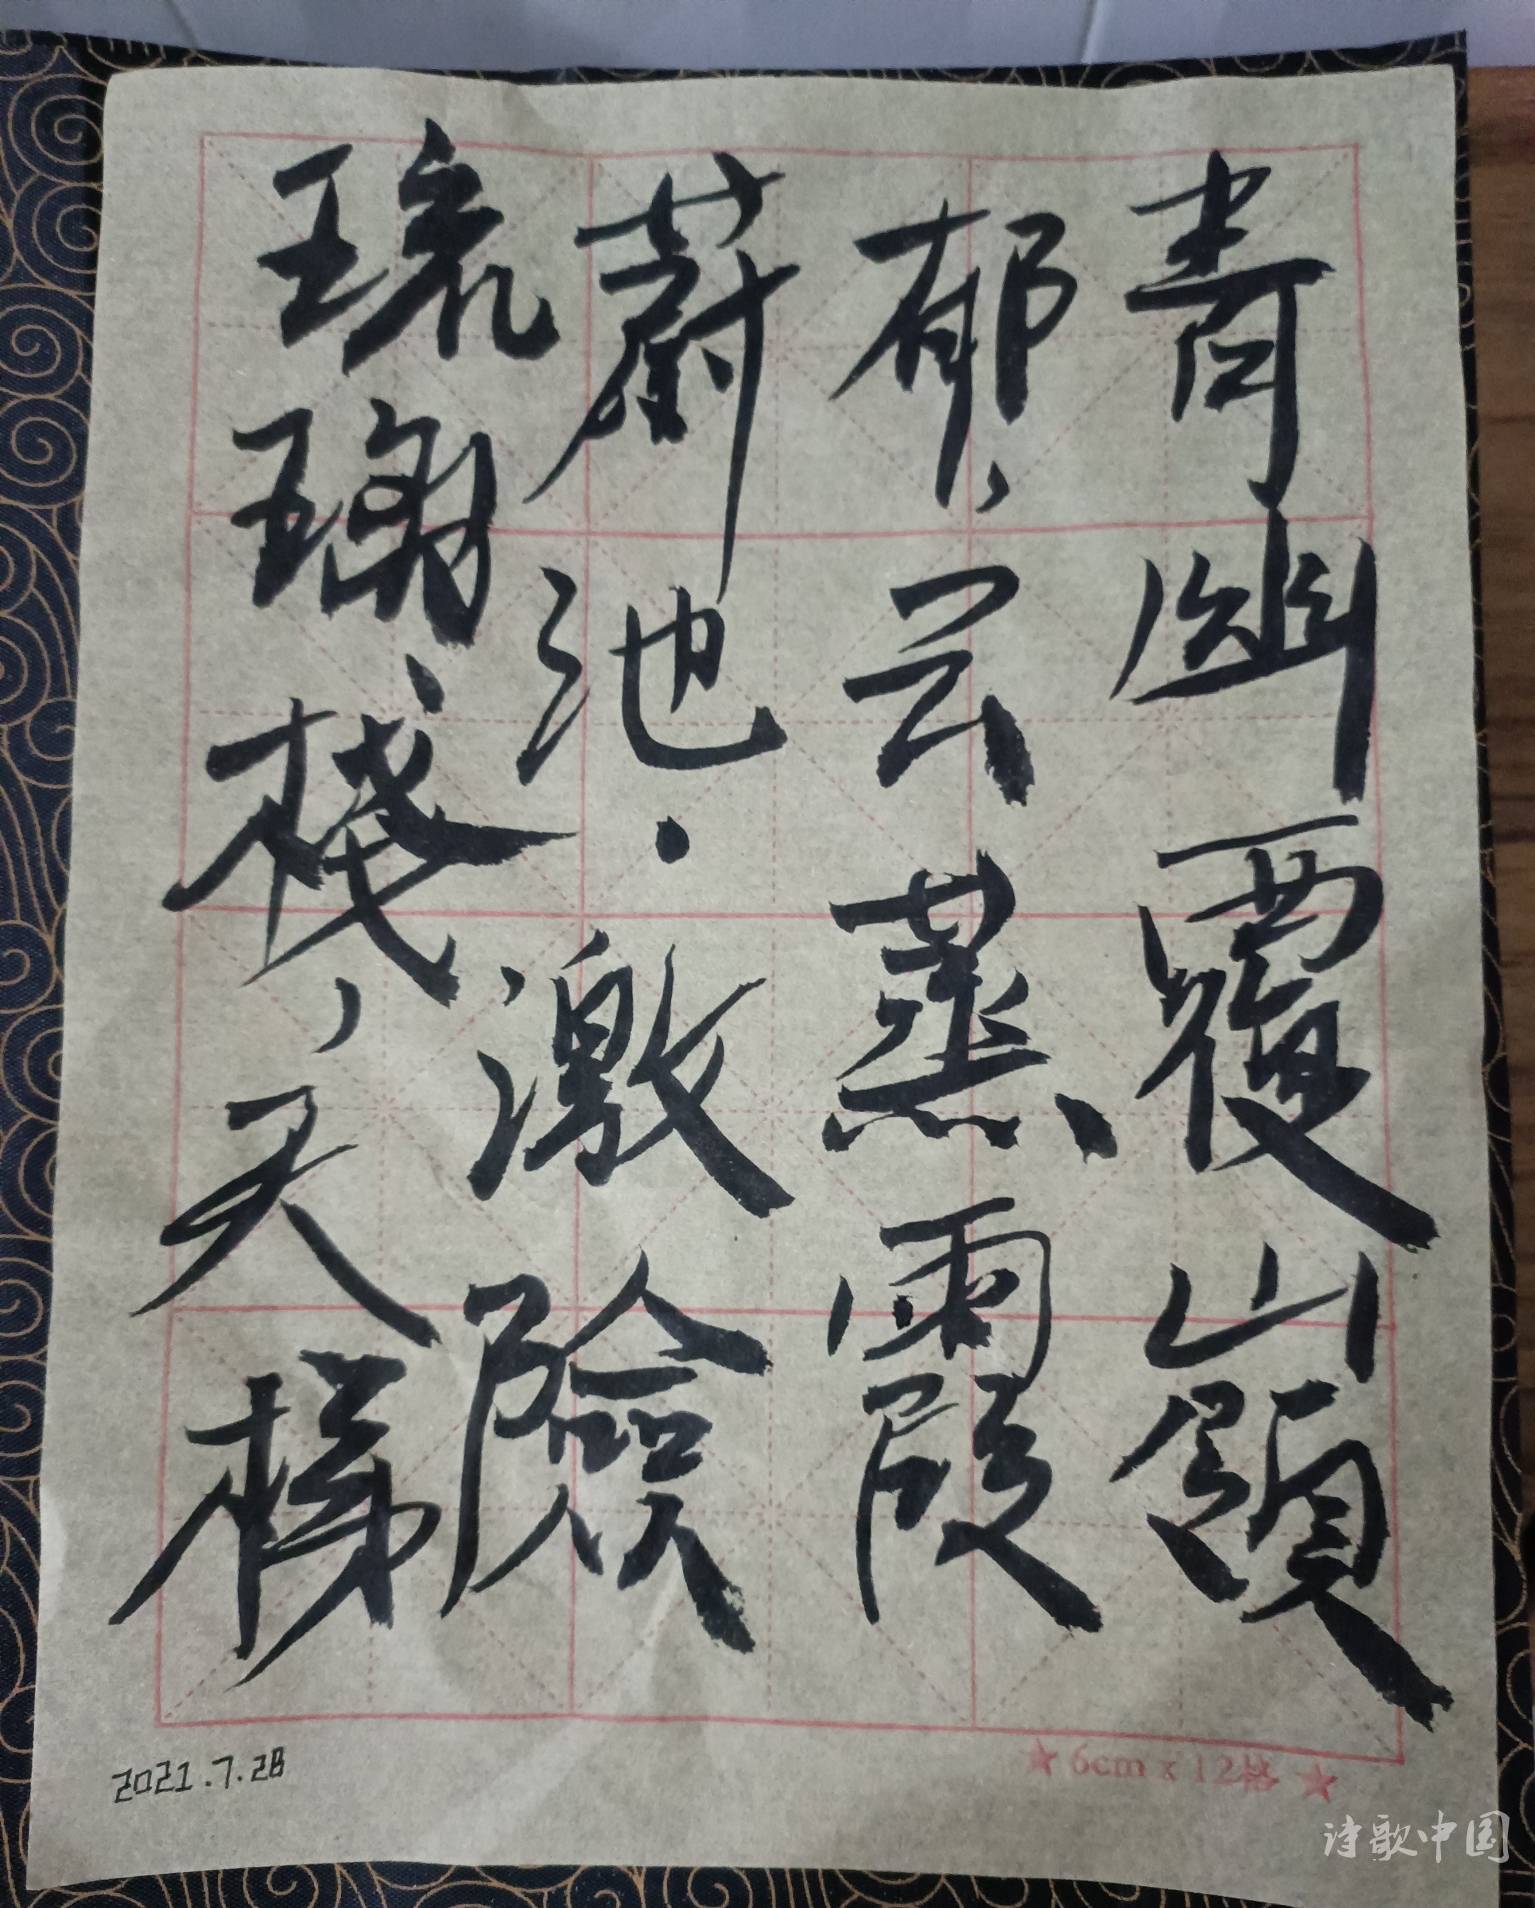 青幽覆山嶺
郁,云蒸霞
蔚池.激險
琉璃棧,天梯
2021.7.28
★6cm x 12格★
诗歌中国